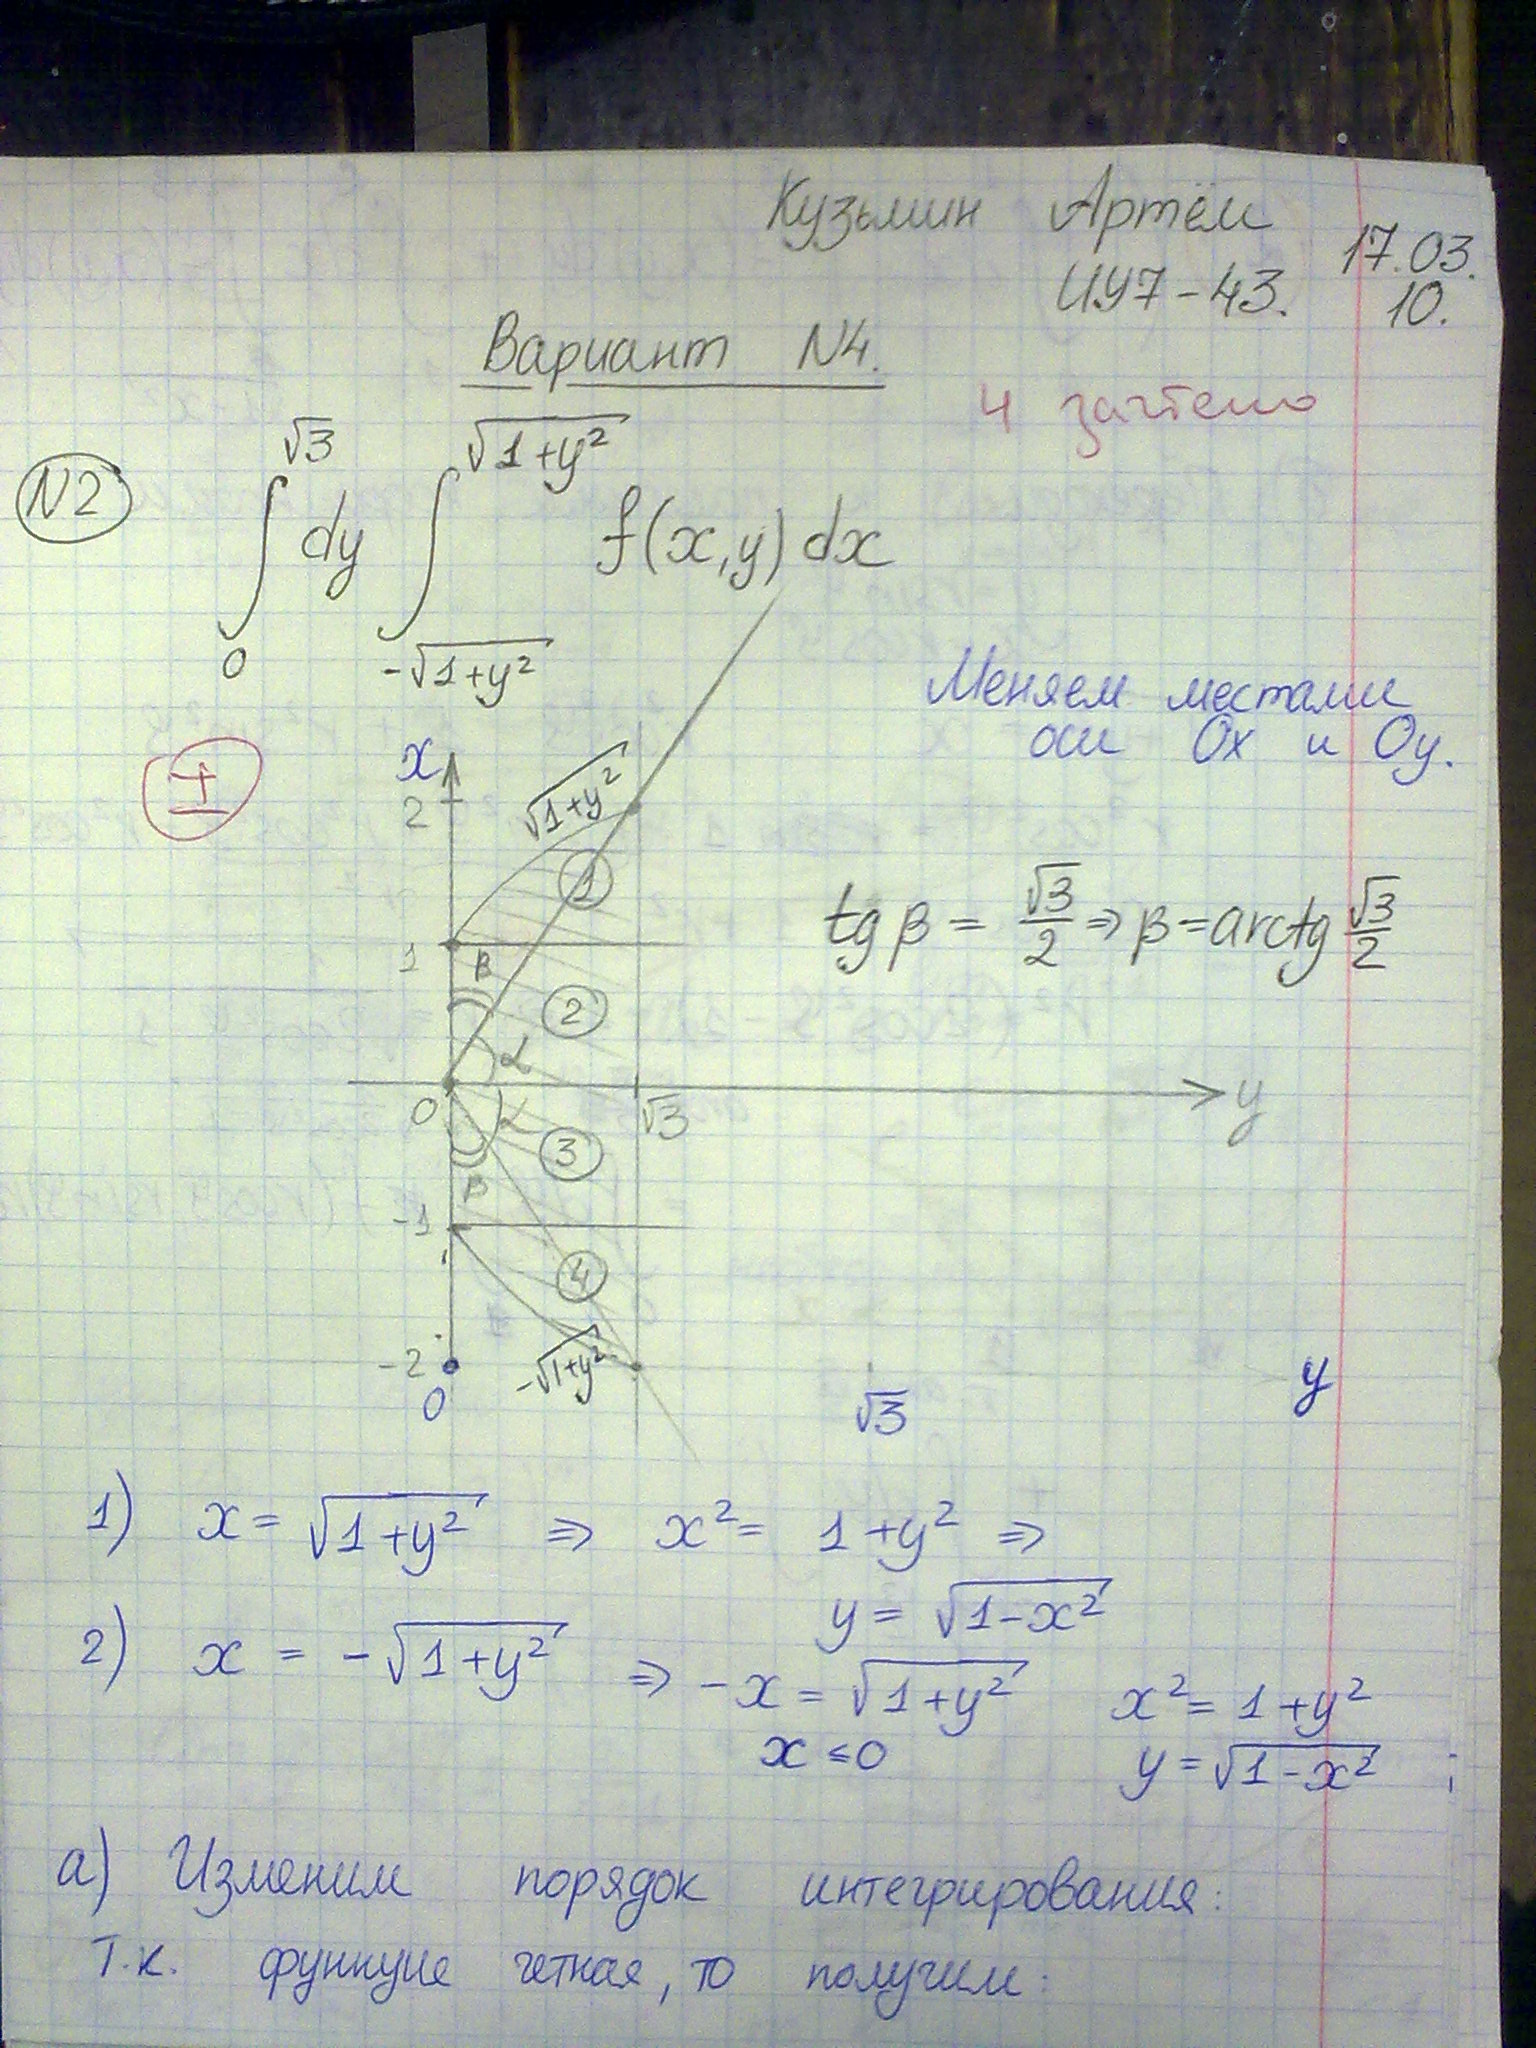 Кузьмин Артём
ИУ7-43. 17.03.
10.
Вариант N4.
4 зачтено
N2
∫₀^√3 dy ∫_{-√1+y²}^{√1+y²} f(x,y) dx
Меняем местами
оси Ox и Oy.
±
x
2
√1+y²
1
tg β = √3/2 ⇒ β = arctg √3/2
1
β
2
α
0
√3
y
α
3
β
-1
4
-2
-√1+y²
0
√3
y
1) x = √1+y² ⇒ x² = 1+y² ⇒
y = √1-x²
2) x = -√1+y² ⇒ -x = √1+y² x² = 1+y²
x ≤ 0 y = √1-x² ;
а) Изменим порядок интегрирования:
Т.к. функция четная, то получим: